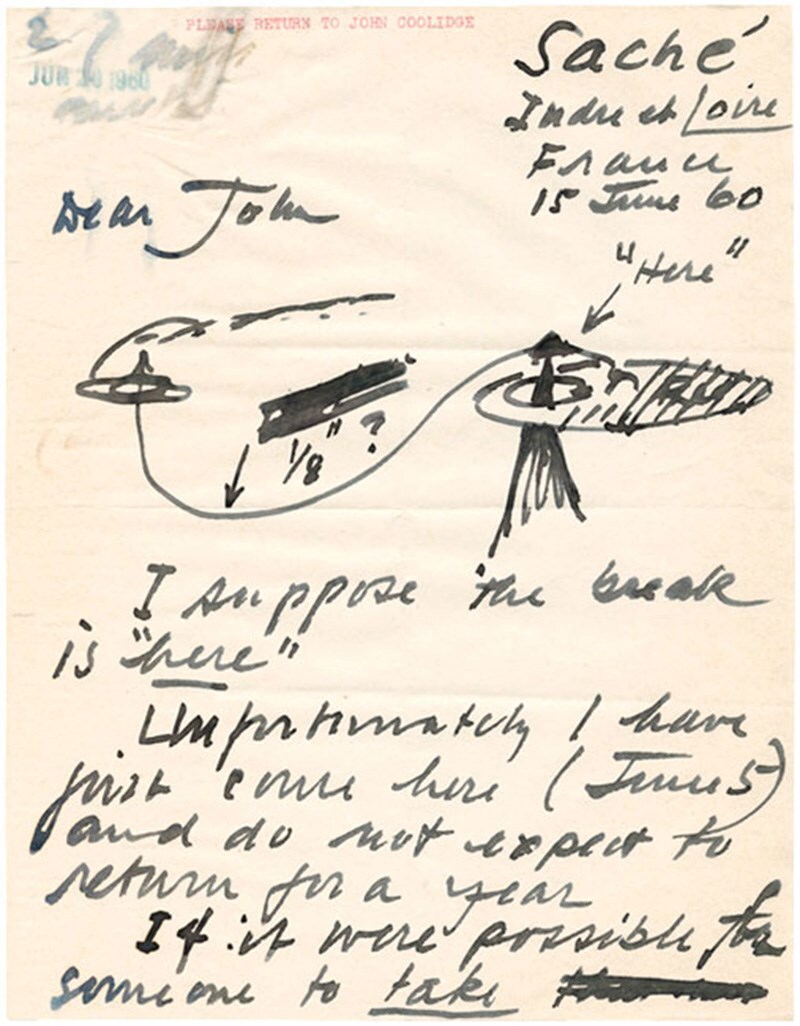 PLEASE RETURN TO JOHN COOLIDGE
JUN 20 1960
Saché
Indre et Loire
France
15 June 60
Dear John
"Here"
1/8" ?
I suppose the break
is "here"
Unfortunately I have
just come here (June 5)
and do not expect to
return for a year
If it were possible for
someone to take